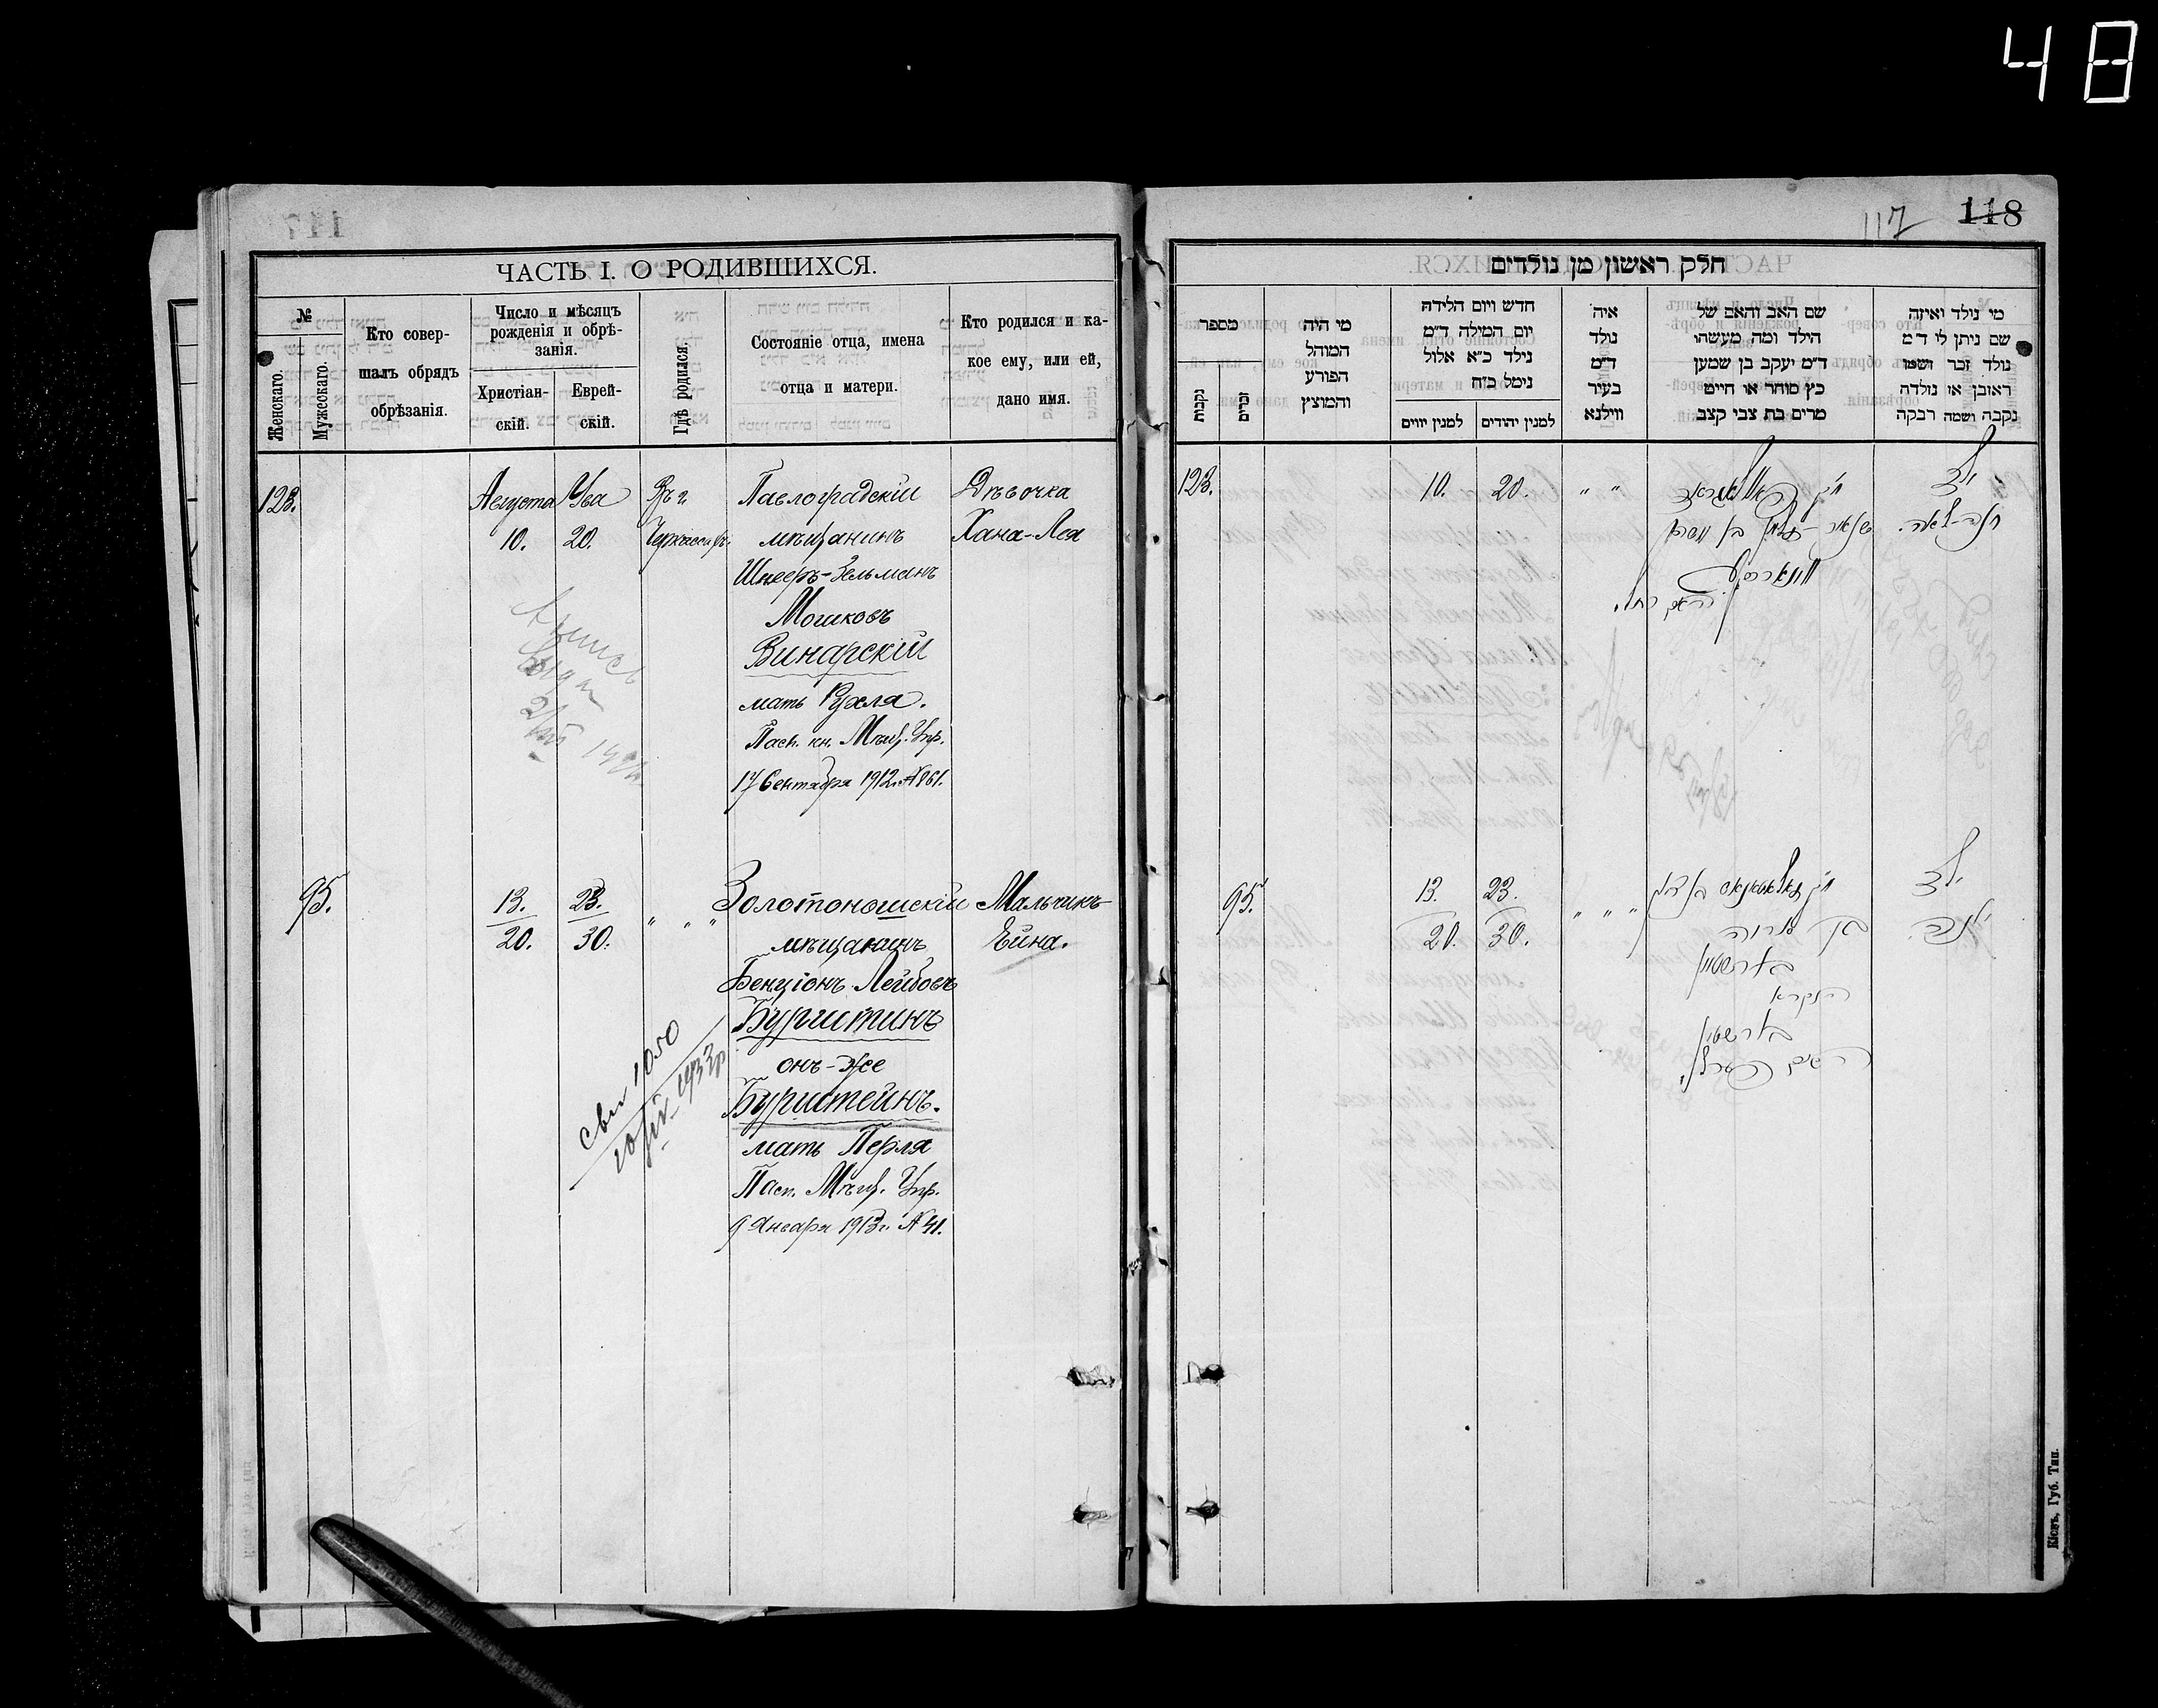 48
118
117
ЧАСТЬ I. О РОДИВШИХСЯ.
№
Женскаго.
Мужескаго.
Кто совер-
шалъ обрядъ
обрѣзанія.
Число и мѣсяцъ
рожденія и обрѣ-
занія.
Христіан-
скій.
Еврей-
скій.
Гдѣ родился.
Состояніе отца, имена
отца и матери.
Кто родился и ка-
кое ему, или ей,
дано имя.
128.
Августа
10.
Ува
20.
Въ г.
Черкассахъ.
Павлоградскій
мѣщанинъ
Шнееръ-Зельманъ
Мошковъ
Винарскій
мать Рухля.
Пасп. кн. Мѣщ. Упр.
17 Сентября 1912 г. № 861.
Дѣвочка
Хана-Лея
95.
13.
20.
23.
30.
" " "
Золотоношскій
мѣщанинъ
Бенціонъ Лейбовъ
Бурштинъ
онъ-же
Бурштейнъ.
мать Перля
Пасп. Мѣщ. Упр.
9 Января 1913 г. № 41.
Мальчикъ
Ейна.
1050
חלק ראשון מן נולדים
מספר
נקבות
זכרים
מי היה
המוהל
הפורע
והמוצץ
חדש ויום הלידה
יום המילה ד"מ
נולד כ"א אלול
נימל כ"ח
למנין יווים
למנין יהודים
איה
נולד
ד"מ
בעיר
ווילנא
שם האב והאם של
הילד ומה מעשהו
ד"מ יעקב בן שמען
כץ סוחר או חייט
מרים בת צבי קצב
מי נולד ואיזה
שם ניתן לו ד"מ
נולד זכר ושמו
ראובן או נולדה
נקבה ושמה רבקה
128.
10.
20.
" "
חנה-לאה.
95.
13.
20.
23.
30.
" " "
בורשטיין
הנקרא
בורשטין
Кіевъ, Губ. Тип.